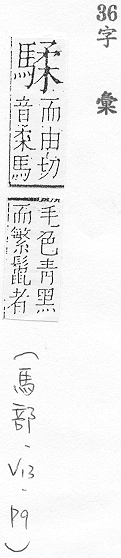 36字 彙
騥
而由切
音柔馬
毛色青黑
而繁鬣者
(馬部.V13.P9)